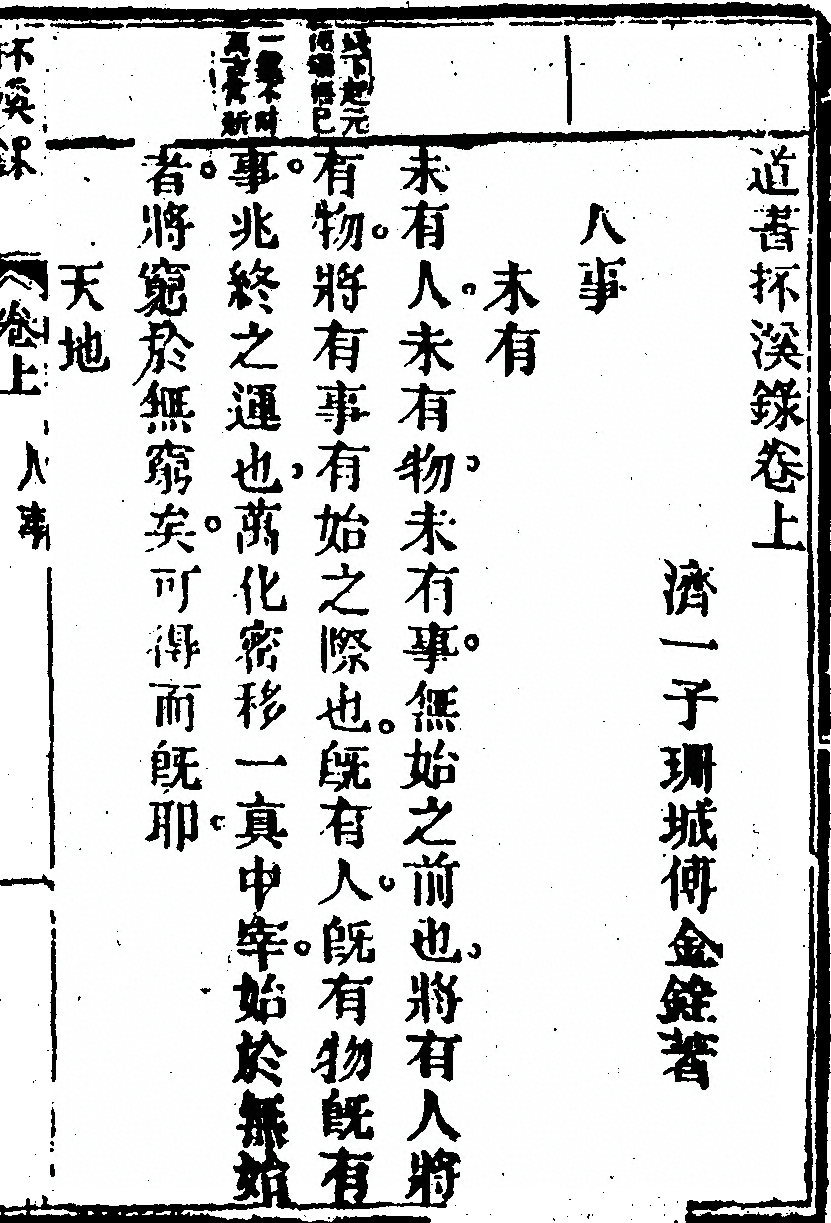 道書抔溪錄卷上
濟一子珊城傅金銓著
人事
未有
未有人。未有物。未有事。無始之前也。將有人將
有物。將有事有始之際也。既有人。既有物既有
事。兆終之運也。萬化密移一真中宰。始於無始
者。將窮於無窮矣。可得而既耶。
天地
杯溪錄
卷上
人事
一